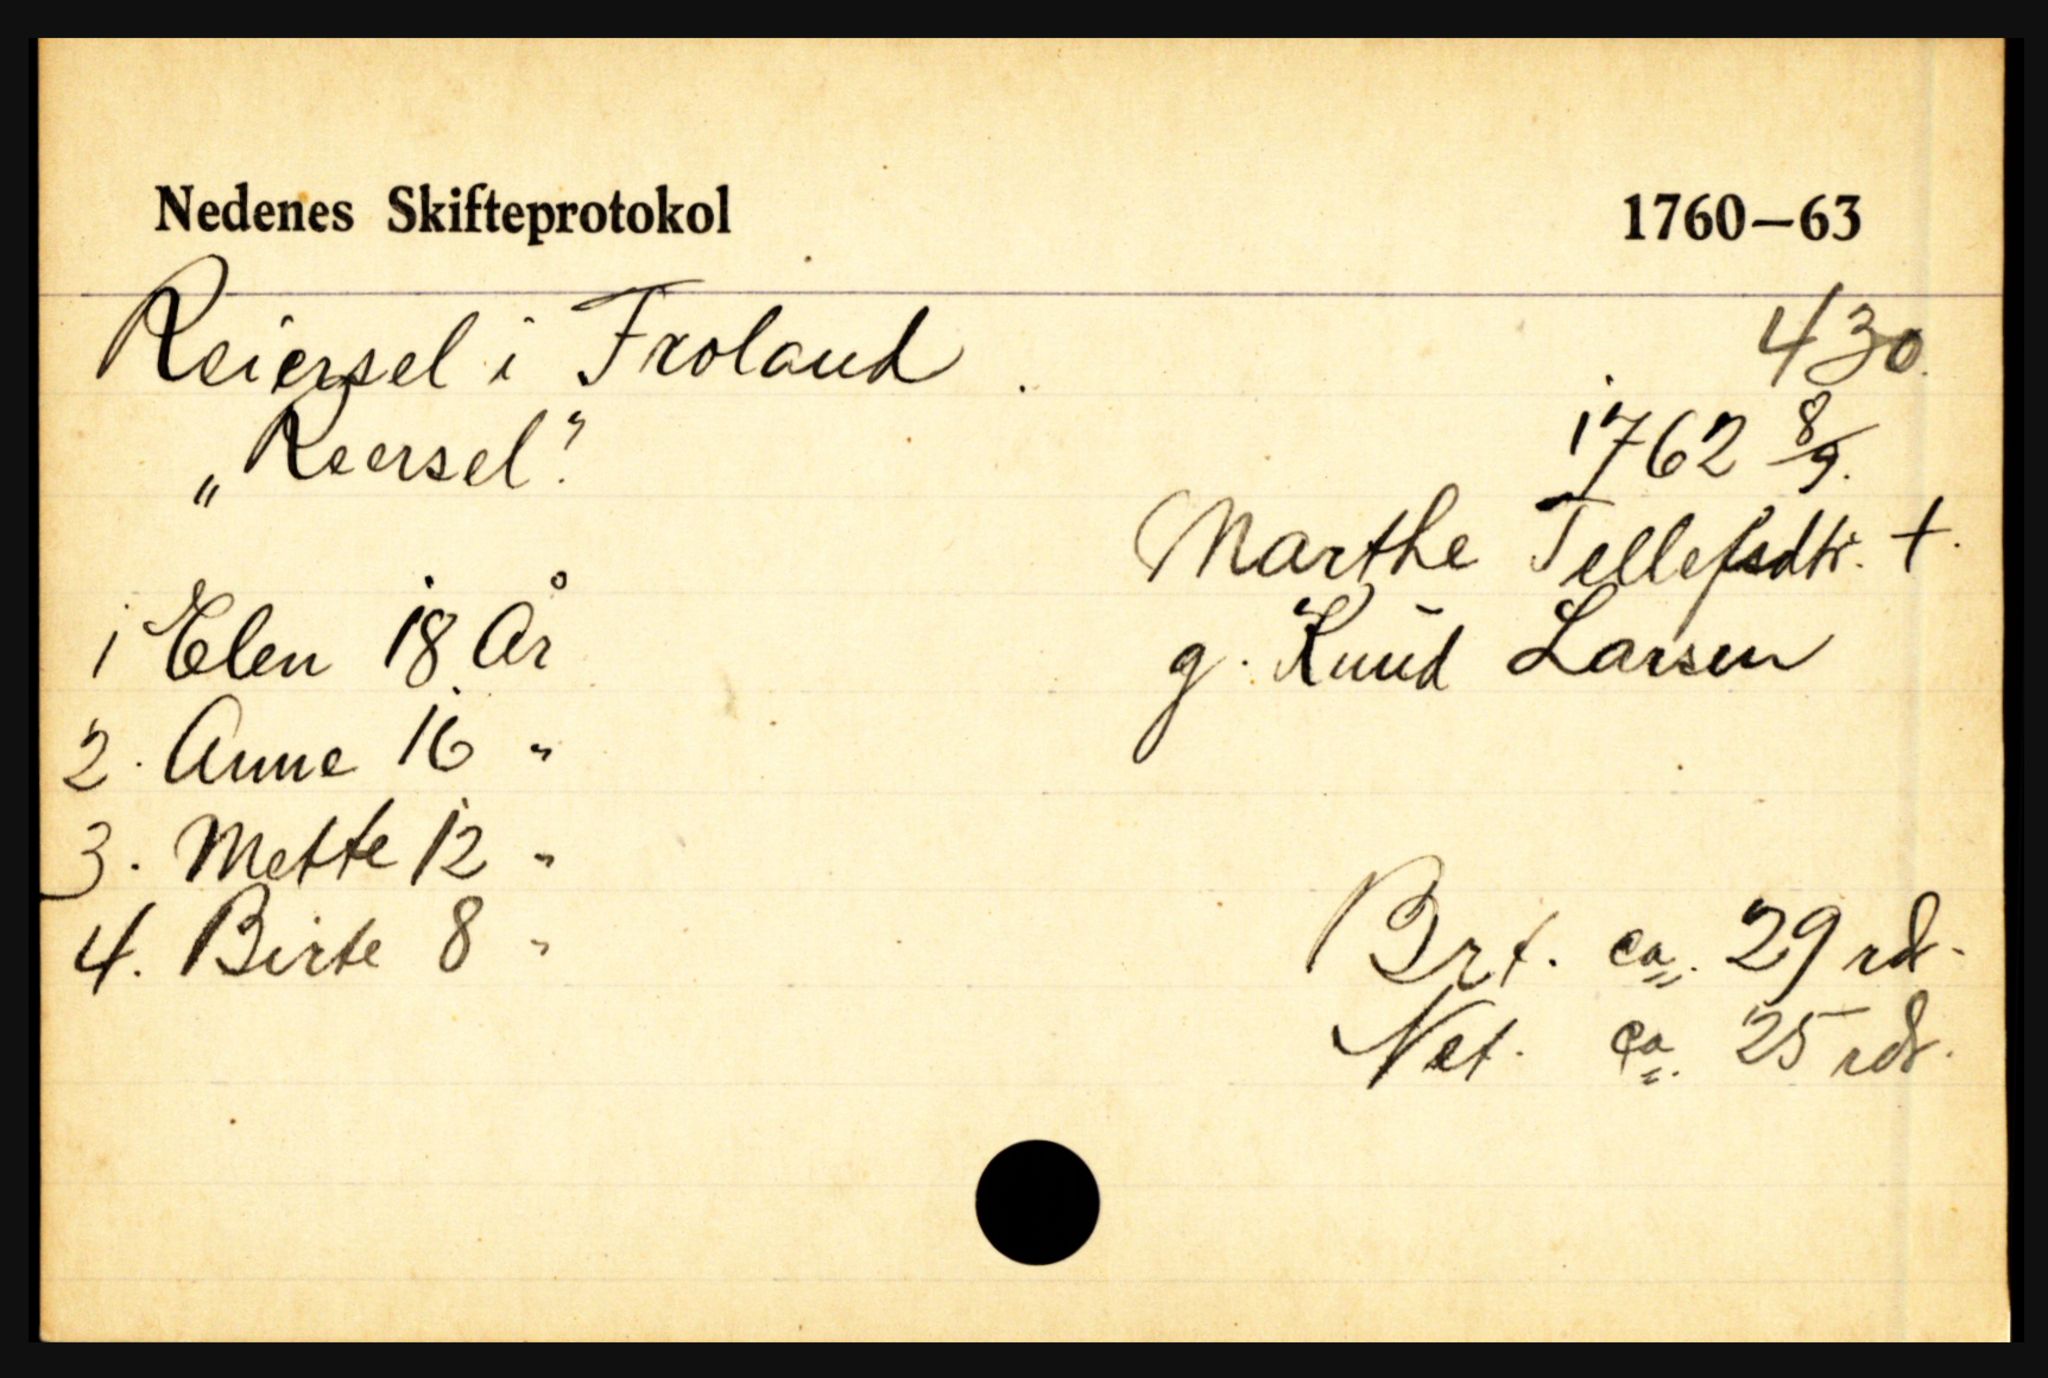 Nedenes Skifteprotokol 1760–63
Reiersel i Froland. 430.
„Reersel". 1762 8/9.
Marthe Tellefsdtr. †.
1 Elen 18 År g. Knud Larsen
2. Anne 16 "
3. Mette 12 "
4. Birte 8 " Brt. ca. 29 rdr.
Net. ca. 25 rdr.